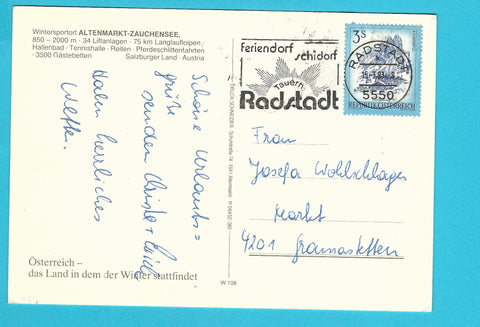 Wintersportort ALTENMARKT-ZAUCHENSEE,
850 – 2000 m · 34 Liftanlagen · 75 km Langlaufloipen
Hallenbad · Tennishalle · Reiten · Pferdeschlittenfahrten
· 3500 Gästebetten Salzburger Land · Austria
Schöne Urlaubs=
grüße
senden Christl +
Haben herrliches
Wetter.
Österreich –
das Land in dem der Winter stattfindet
DRUCK SCHNEIDER
W 106
feriendorf
schidorf
Tauern
Radstadt
3s
REPUBLIK ÖSTERREICH
RADSTADT
5550
Frau
Josefa Wohlschlager
Markt
4201 Gramastetten